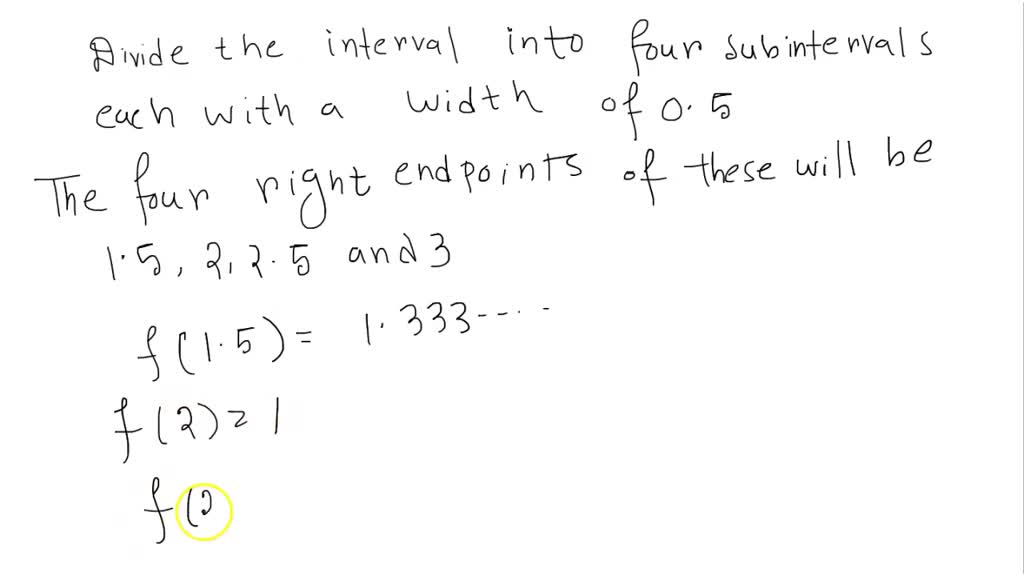 Divide the interval into four subintervals
each with a width of 0.5
The four right endpoints of these will be
1.5, 2, 2.5 and 3
f(1.5) = 1.333-----
f(2) = 1
f(2